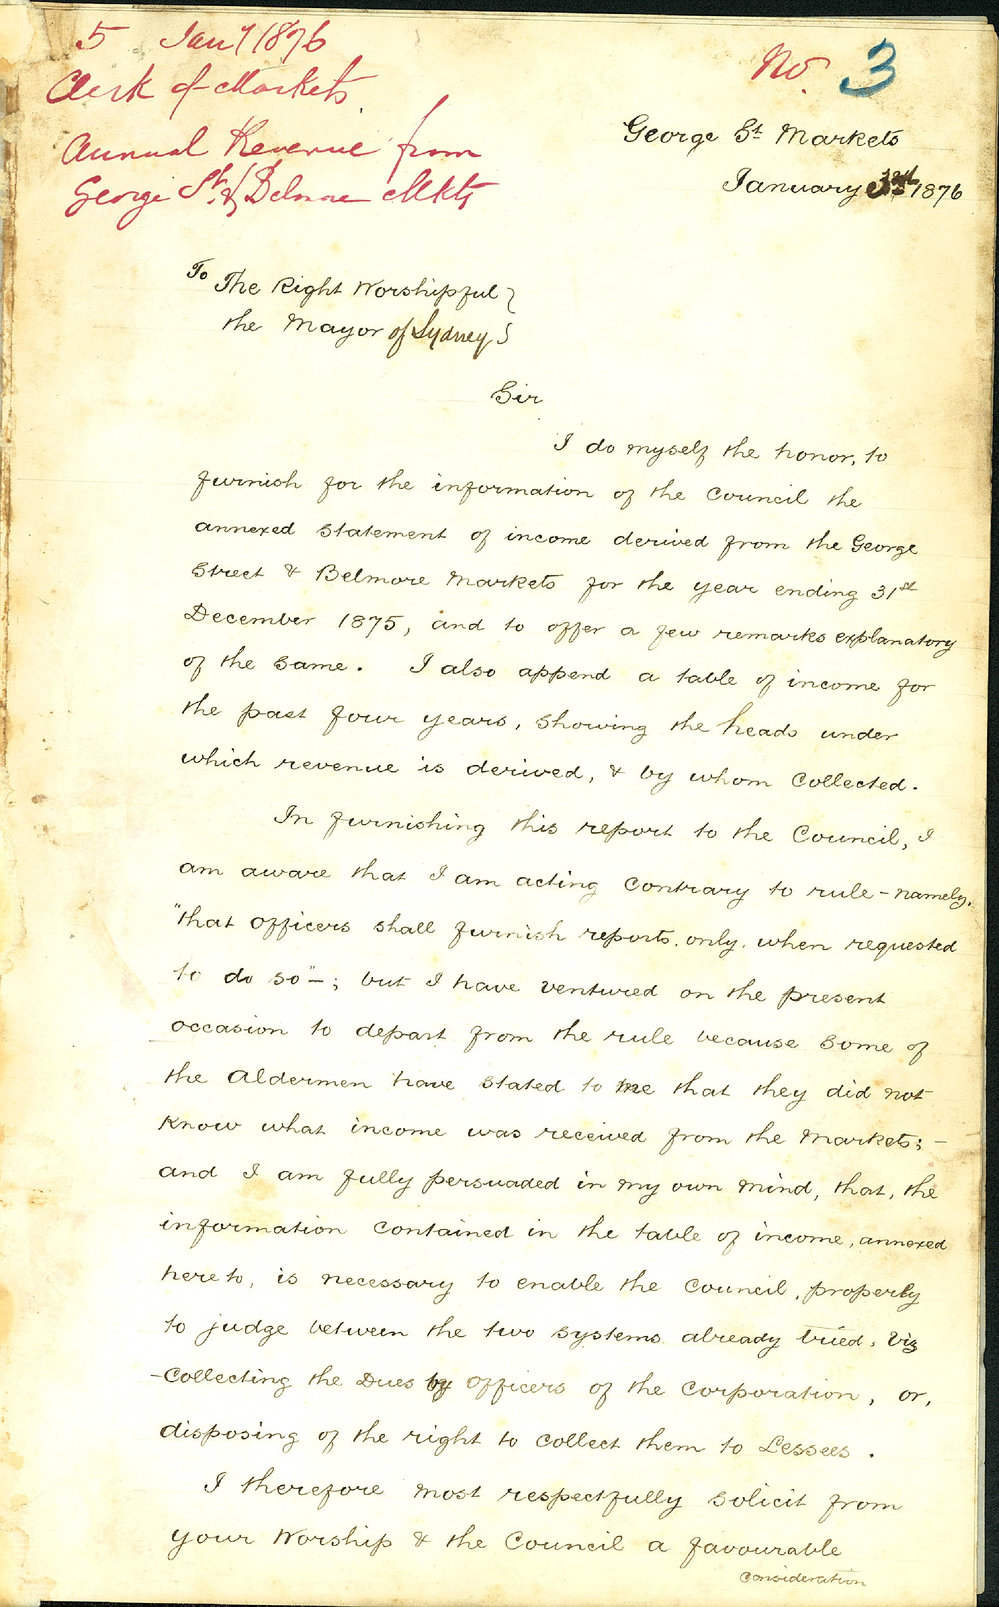 5 Jany 1876
Clerk of Markets
Annual Revenue from
George St. & Belmore Mkts
No. 3
George St Markets
January 3rd 1876
To The Right Worshipful
the Mayor of Sydney
Sir
I do myself the honor, to
furnish for the information of the Council the
annexed statement of income derived from the George
Street & Belmore Markets for the year ending 31st
December 1875, and to offer a few remarks explanatory
of the same. I also append a table of income for
the past four years, showing the heads under
which revenue is derived, & by whom collected.
In furnishing this report to the Council, I
am aware that I am acting contrary to rule - namely,
"that officers shall furnish reports. only. when requested
to do so"-; but I have ventured on the present
occasion to depart from the rule because some of
the Aldermen have stated to me that they did not
know what income was received from the Markets; -
and I am fully persuaded in my own mind, that, the
information contained in the table of income, annexed
hereto, is necessary to enable the Council, properly
to judge between the two systems already tried, viz
-Collecting the Dues by officers of the Corporation, or,
disposing of the right to collect them to Lessees.
I therefore most respectfully solicit from
your Worship & the Council a favourable
consideration